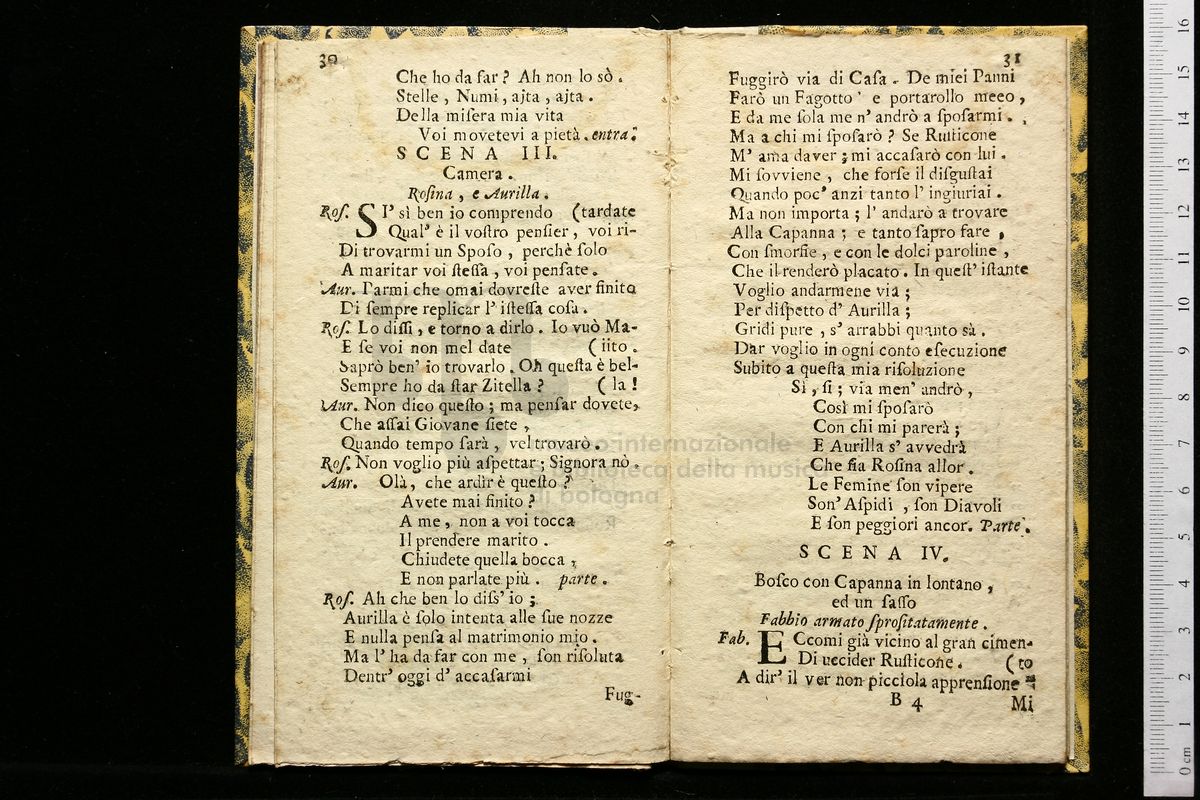 30
Che ho da far? Ah non lo sò.
Stelle, Numi, ajta, ajta.
Della miſera mia vita
Voi movetevi a pietà. entra.
SCENA III.
Camera.
Roſina, e Aurilla.
Roſ. SI' sì ben io comprendo (tardate
Qual' è il voſtro penſier, voi ri-
Di trovarmi un Spoſo, perchè ſolo
A maritar voi ſteſſa, voi penſate.
Aur. Parmi che omai dovreſte aver finito
Di ſempre replicar l' iſteſſa coſa.
Roſ. Lo diſſi, e torno a dirlo. Io vuò Ma-
E ſe voi non mel date (iito.
Saprò ben' io trovarlo. Oh queſta è bel-
Sempre ho da ſtar Zitella? (la!
Aur. Non dico queſto; ma penſar dovete,
Che aſſai Giovane ſiete,
Quando tempo ſarà, vel trovarò.
Roſ. Non voglio più aſpettar; Signora nò.
Aur. Olà, che ardir è queſto?
Avete mai finito?
A me, non a voi tocca
Il prendere marito.
Chiudete quella bocca,
E non parlate più. parte.
Roſ. Ah che ben lo diſs' io;
Aurilla è ſolo intenta alle ſue nozze
E nulla penſa al matrimonio mio.
Ma l' ha da far con me, ſon riſoluta
Dentr' oggi d' accaſarmi
Fug-
31
Fuggirò via di Caſa. De miei Panni
Farò un Fagotto' e portarollo meco,
E da me ſola me n' andrò a ſpoſarmi.
Ma a chi mi ſpoſarò? Se Ruſticone
M' ama daver; mi accaſarò con lui.
Mi ſovviene, che forſe il diſguſtai
Quando poc' anzi tanto l' ingiuriai.
Ma non importa; l' andarò a trovare
Alla Capanna; e tanto ſapro fare,
Con ſmorfie, e con le dolci paroline,
Che il renderò placato. In queſt' iſtante
Voglio andarmene via;
Per diſpetto d' Aurilla;
Gridi pure, s' arrabbi quanto sà.
Dar voglio in ogni conto eſecuzione
Subito a queſta mia riſoluzione
Sì, ſi; via men' andrò,
Così mi ſpoſarò
Con chi mi parerà;
E Aurilla s' avvedrà
Che ſia Roſina allor.
Le Femine ſon vipere
Son' Aſpidi, ſon Diavoli
E ſon peggiori ancor. Parte.
SCENA IV.
Boſco con Capanna in lontano,
ed un ſaſſo
Fabbio armato ſproſitatamente.
Fab. ECcomi già vicino al gran cimen-
Di uccider Ruſticone. (to
A dir' il ver non picciola apprenſione
B 4
Mi
museo internazionale
e biblioteca della musica
di bologna
0 cm 1 2 3 4 5 6 7 8 9 10 11 12 13 14 15 16